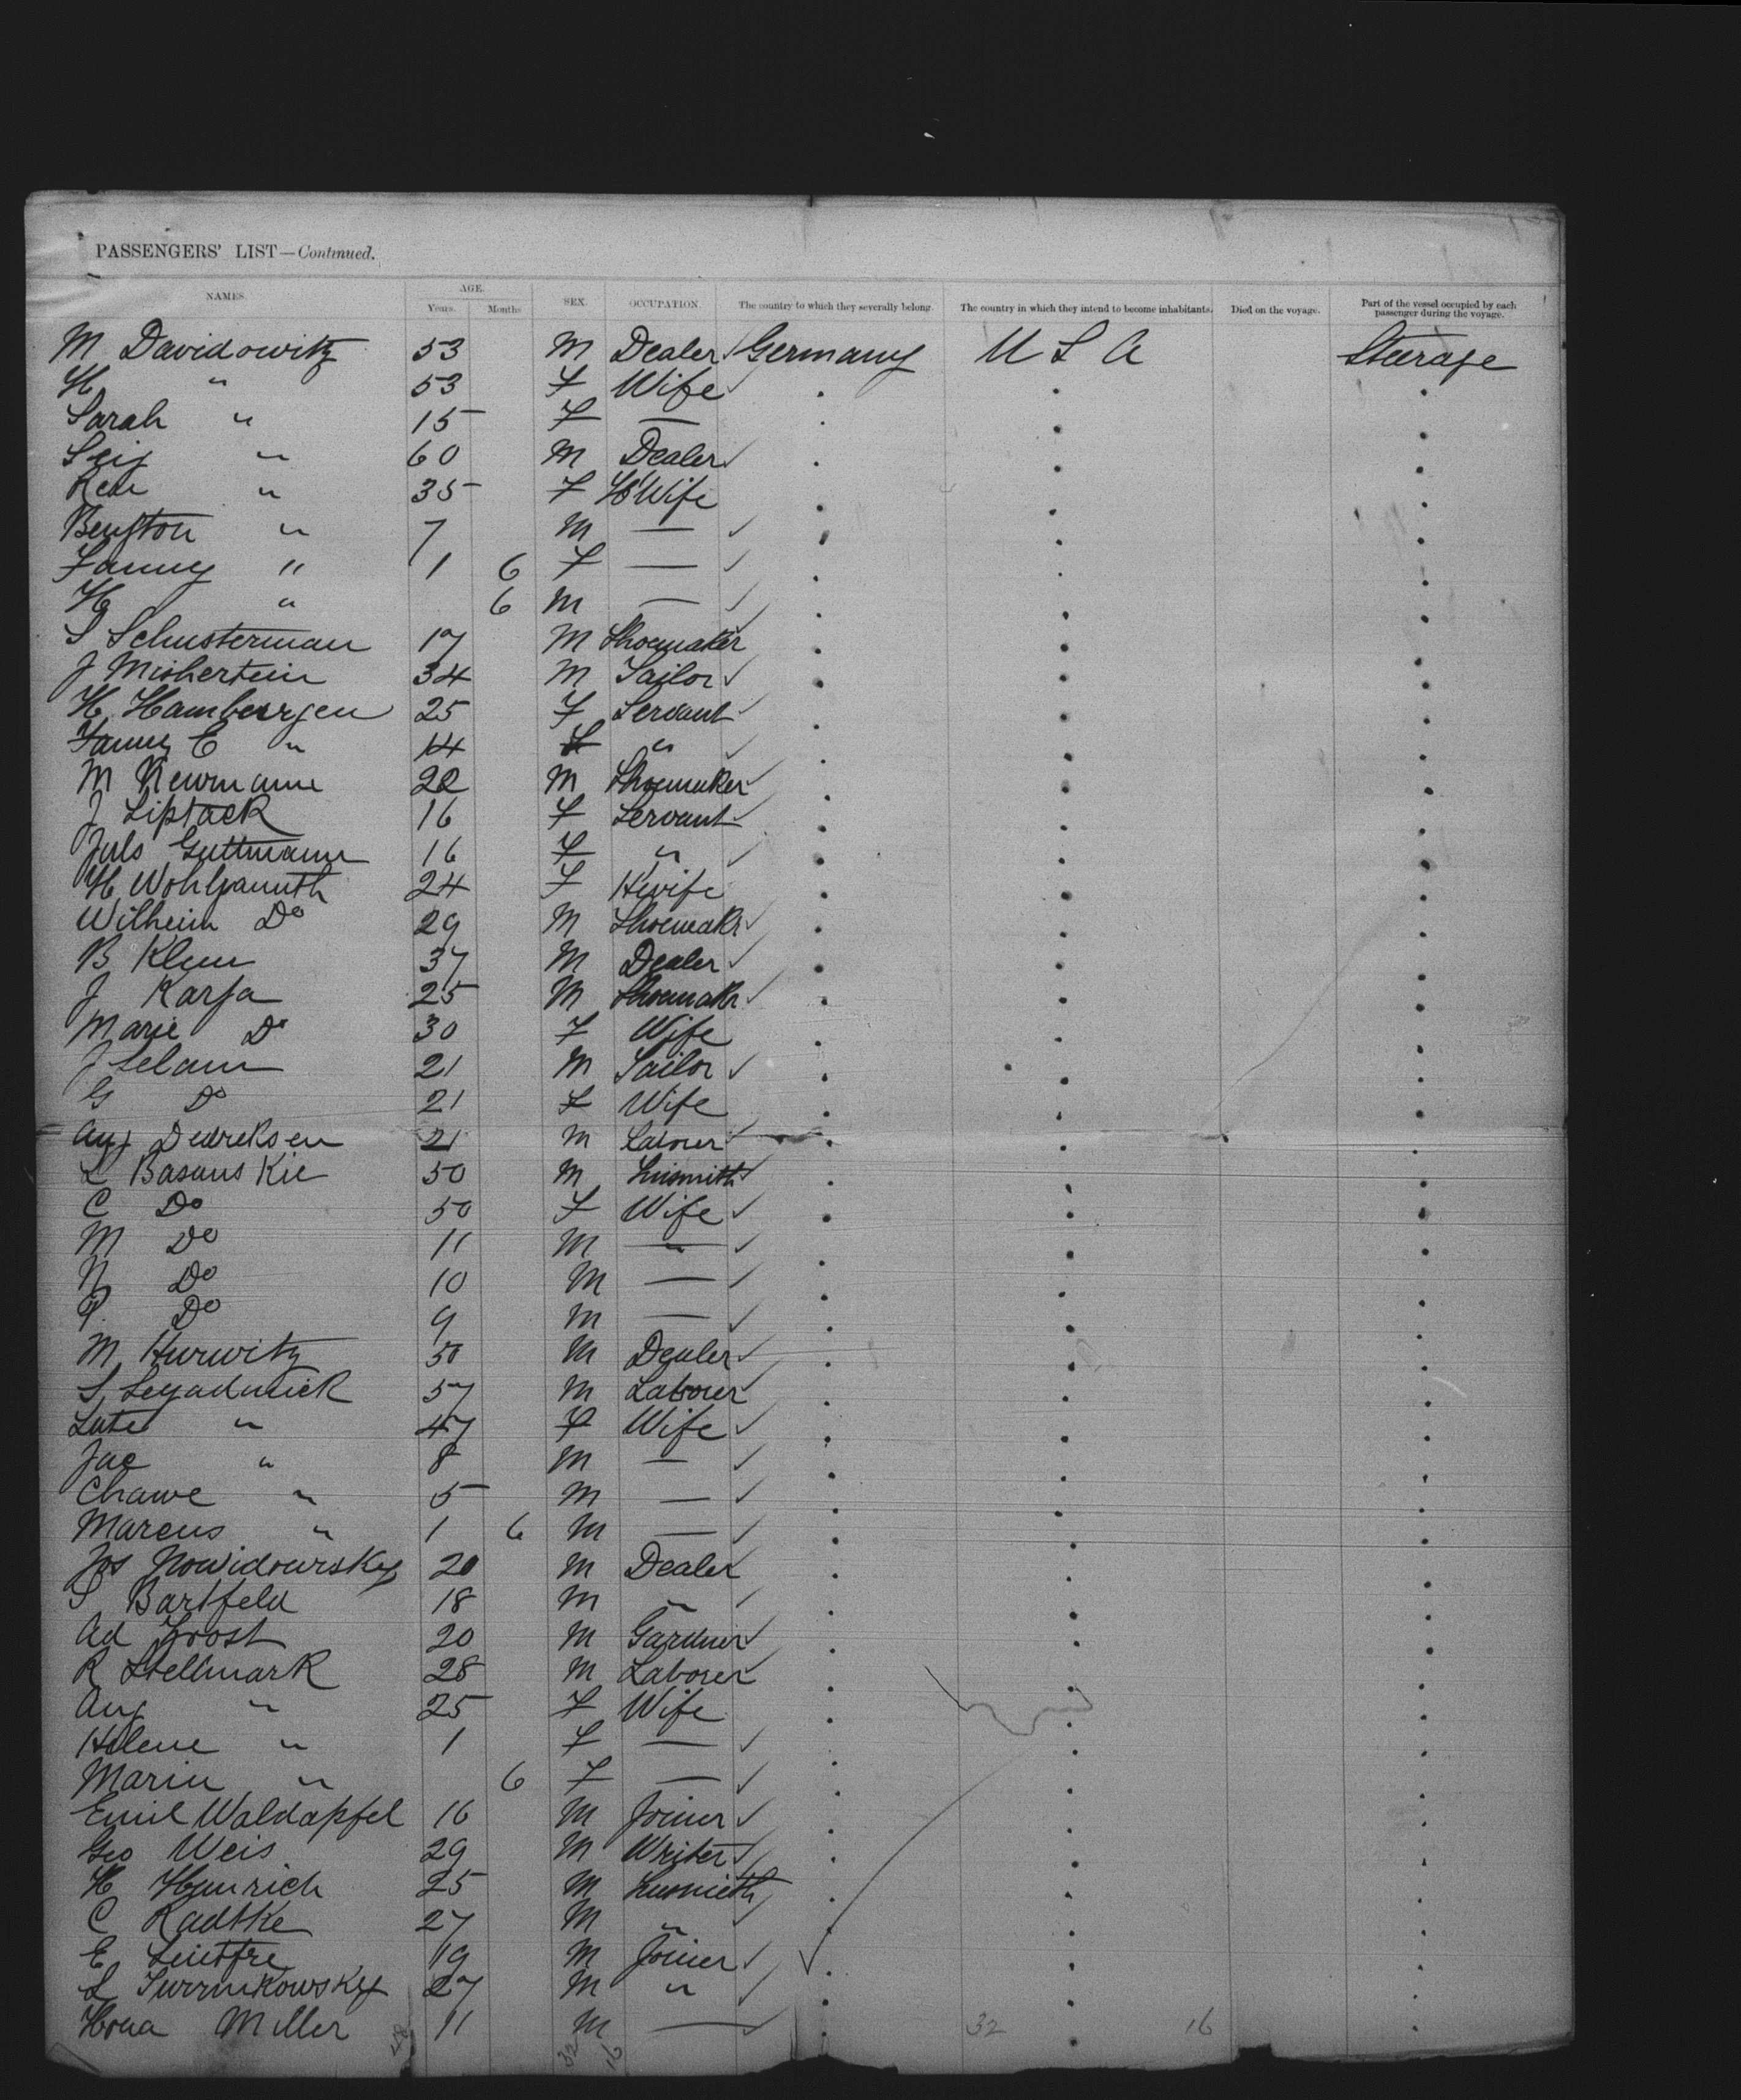 PASSENGERS' LIST—Continued.
NAMES. AGE. Years. Months SEX. OCCUPATION. The country to which they severally belong. The country in which they intend to become inhabitants. Died on the voyage. Part of the vessel occupied by each passenger during the voyage.
M Davidowitz 53 M Dealer Germany U S A Steerage
H " 53 F Wife
Sarah " 15 F —
" 60 M Dealer
" 35 F H Wife
" 7 M —
Fanny " 1 6 F —
H " 6 M —
S Schusterman 17 M Shoemaker
J Mishertein 34 M Tailor
H Hambergen 25 F Servant
Fanny C " 14 F "
M Newmann 22 M Shoemaker
J Liptack 16 F Servant
Juls Guttmann 16 F "
H Wohlgamuth 24 F Hwife
Wilheim Do 29 M Shoemakr
B Klein 37 M Dealer
J Karja 25 M Shoemakr
Marie Do 30 F Wife
J Selam 21 M Tailor
G Do 21 F Wife
Aug Dedreksen 21 M Laborer
L Basauskie 50 M Tinsmith
C Do 50 F Wife
M Do 11 M "
N Do 10 M —
P. Do 9 M —
M Hurwitz 50 M Dealer
S Leyadnick 57 M Laborer
Lute " 47 F Wife
Jac " 8 M —
Chawe " 5 M —
Marcus " 1 6 M —
Jos Nowidowrsky 20 M Dealer
S Bartfeld 18 M "
Ad Joost 20 M Gardner
R Stellmark 28 M Laborer
Aug " 25 F Wife
Helene " 1 F —
Marin " 6 F —
Emil Waldapfel 16 M Joiner
Geo Weis 29 M Writer
H Heinrich 25 M
C Radtke 27 M "
E 19 M Joiner
27 M "
Miller 11 M —
32 16
48 32 16